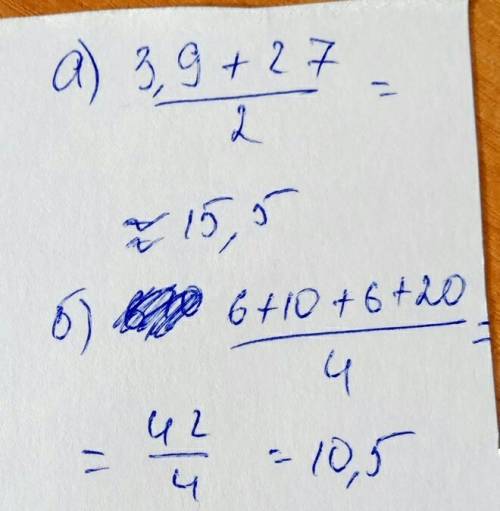 а) 3,9 + 27 / 2 =
≈ 15,5
б) 6+10+6+20 / 4 =
= 42 / 4 = 10,5